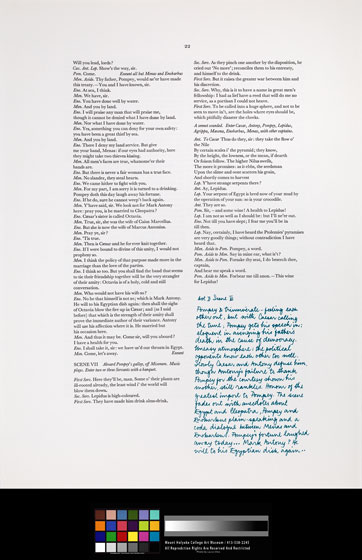 22
Will you lead, lords?
Cae. Ant. Lep. Show's the way, sir.
Pom. Come. Exeunt all but Menas and Enobarbus
Men. Aside. Thy father, Pompey, would ne'er have made
this treaty. —You and I have known, sir.
Eno. At sea, I think.
Men. We have, sir.
Eno. You have done well by water.
Men. And you by land.
Eno. I will praise any man that will praise me,
though it cannot be denied what I have done by land.
Men. Nor what I have done by water.
Eno. Yes, something you can deny for your own safety:
you have been a great thief by sea.
Men. And you by land.
Eno. There I deny my land service. But give
me your hand, Menas: if our eyes had authority, here
they might take two thieves kissing.
Men. All men's faces are true, whatsome'er their
hands are.
Eno. But there is never a fair woman has a true face.
Men. No slander, they steal hearts.
Eno. We came hither to fight with you.
Men. For my part, I am sorry it is turned to a drinking.
Pompey doth this day laugh away his fortune.
Eno. If he do, sure he cannot weep't back again.
Men. Y'have said, sir. We look not for Mark Antony
here: pray you, is he married to Cleopatra?
Eno. Caesar's sister is called Octavia.
Men. True, sir, she was the wife of Caius Marcellus.
Eno. But she is now the wife of Marcus Antonius.
Men. Pray ye, sir?
Eno. 'Tis true.
Men. Then is Caesar and he for ever knit together.
Eno. If I were bound to divine of this unity, I would not
prophesy so.
Men. I think the policy of that purpose made more in the
marriage than the love of the parties.
Eno. I think so too. But you shall find the band that seems
to tie their friendship together will be the very strangler
of their amity: Octavia is of a holy, cold and still
conversation.
Men. Who would not have his wife so?
Eno. Not he that himself is not so; which is Mark Antony.
He will to his Egyptian dish again: then shall the sighs
of Octavia blow the fire up in Caesar; and (as I said
before) that which is the strength of their amity shall
prove the immediate author of their variance. Antony
will use his affection where it is. He married but
his occasion here.
Men. And thus it may be. Come sir, will you aboard?
I have a health for you.
Eno. I shall take it, sir: we have us'd our throats in Egypt.
Men. Come, let's away. Exeunt
SCENE VII Aboard Pompey's galley, off Misenum. Music
plays. Enter two or three Servants with a banquet.
First Ser. Here they'll be, man. Some o' their plants are
ill-rooted already; the least wind i' the world will
blow them down.
Sec. Ser. Lepidus is high-coloured.
First Ser. They have made him drink alms-drink.
Sec. Ser. As they pinch one another by the disposition, he
cries out 'No more'; reconciles them to his entreaty,
and himself to the drink.
First Ser. But it raises the greater war between him and
his discretion.
Sec. Ser. Why, this it is to have a name in great men's
fellowship: I had as lief have a reed that will do me no
service, as a partisan I could not heave.
First Ser. To be called into a huge sphere, and not to be
seen to move in't, are the holes where eyes should be,
which pitifully disaster the cheeks.
Ant. To Caesar Thus do they, sir: they take the flow o'
the Nile
By certain scales i' the pyramid; they know,
By the height, the lowness, or the mean, if dearth
Or foison follow. The higher Nilus swells,
The more it promises: as it ebbs, the seedsman
Upon the slime and ooze scatters his grain,
And shortly comes to harvest
Lep. Y'have strange serpents there?
Ant. Ay, Lepidus.
Lep. Your serpent of Egypt is bred now of your mud by
the operation of your sun: so is your crocodile.
Ant. They are so
Pom. Sit, —and some wine! A health to Lepidus!
Lep. I am not so well as I should be: but I'll ne'er out.
Eno. Not till you have slept; I fear me you'll be in
till then.
Lep. Nay, certainly, I have heard the Ptolemies' pyramises
are very goodly things; without contradiction I have
heard that.
Men. Aside to Pom. Pompey, a word.
Pom. Aside to Men. Say in mine ear, what is't?
Men. Aside to Pom. Forsake thy seat, I do beseech thee,
captain,
And hear me speak a word.
Pom. Aside to Men. Forbear me till anon. —This wine
for Lepidus!
Pompey & triumvirate - facing each
other out, but with Caesar calling
the tune. Pompey gets his speech in;
eloquent in avenging his father's
death in the cause of democracy.
Uneasy atmosphere: the political
opponents know each other too well.
though Antony's failure to thank
Pompey for the courtesy shown his
mother still rankles. Honour of the
greatest import to Pompey. The scene
fades out with anecdotes about
Egypt and Cleopatra. Pompey and
Enobarbus plain-speaking and a
code dialogue between Menas and
Enobarbus. Pompey's fortune laughed
away today... Mark Antony? He
will to his Egyptian dish again..
Mount Holyoke College Art Museum · 413-538-2245
All Reproduction Rights Are Reserved And Restricted